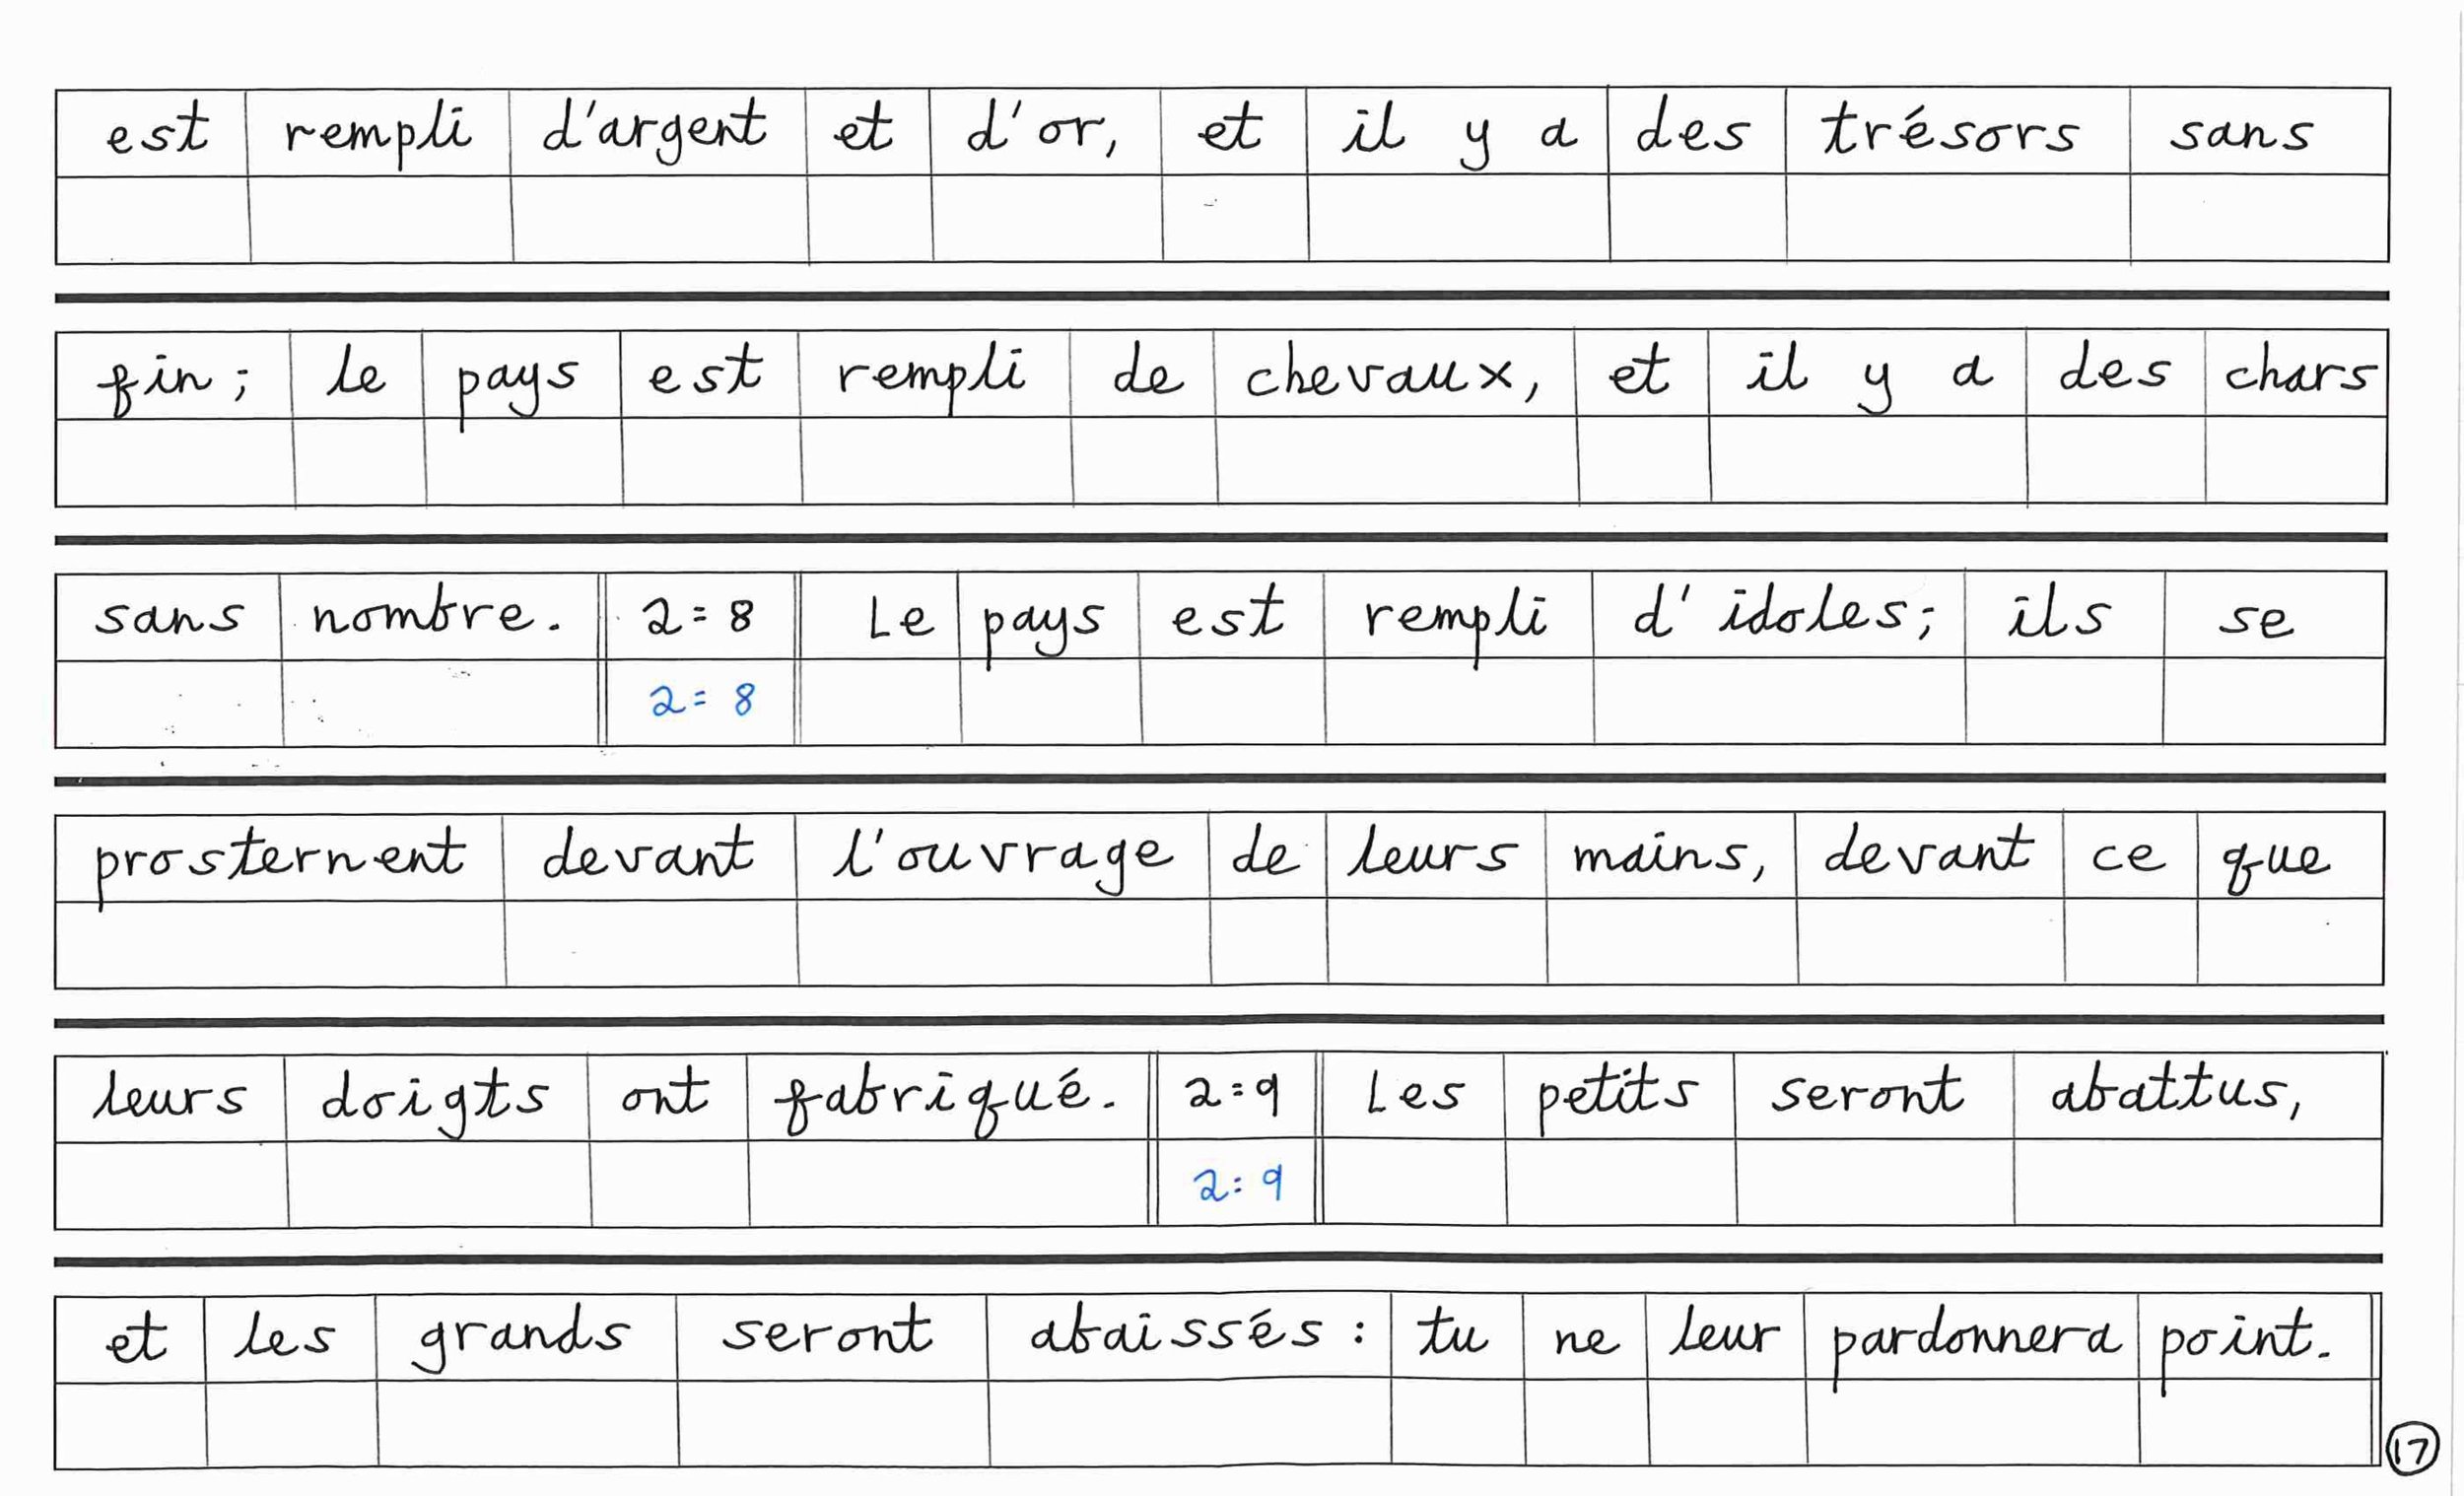 est rempli d'argent et d'or, et il y a des trésors sans
fin; le pays est rempli de chevaux, et il y a des chars
sans nombre. 2:8 Le pays est rempli d'idoles; ils se
2:8
prosternent devant l'ouvrage de leurs mains, devant ce que
leurs doigts ont fabriqué. 2:9 Les petits seront abattus,
2:9
et les grands seront abaissés: tu ne leur pardonnera point.
17